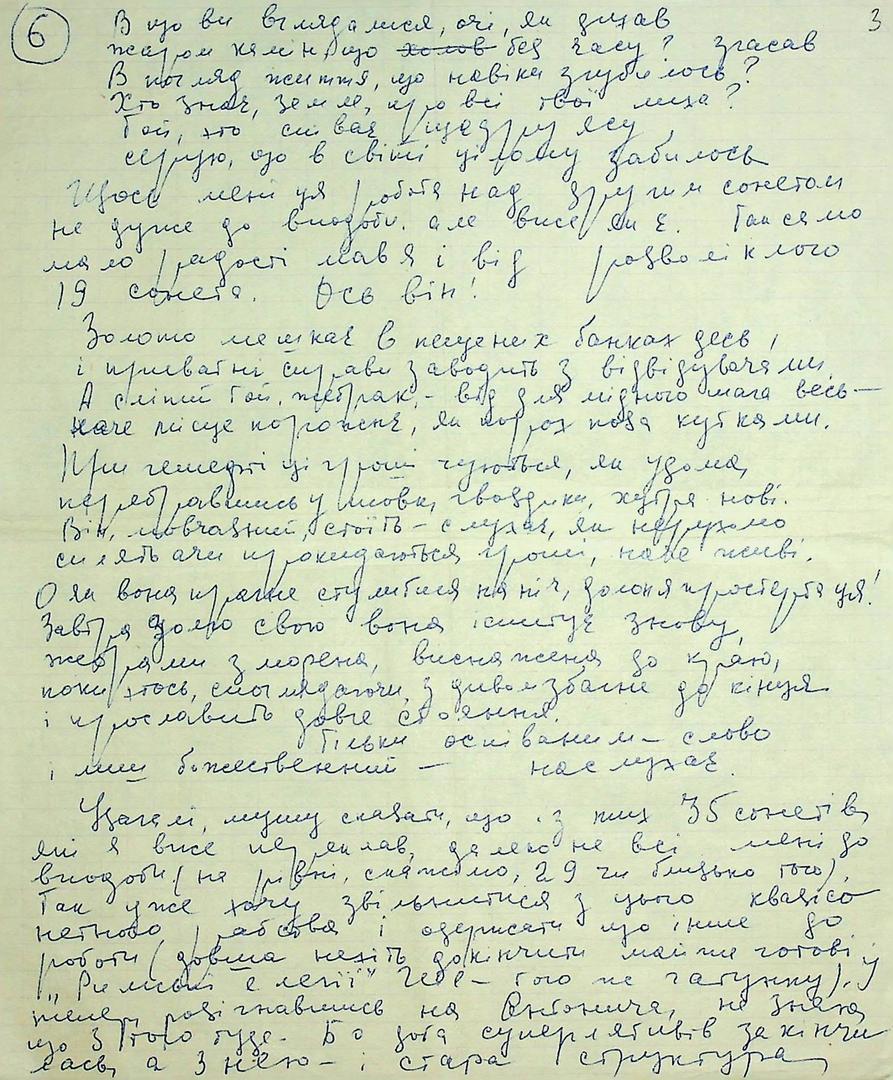 6
3
В що ви вглядалися, очі, як дихав
жаром камін, що холов без часу? Згасав
В погляд життя, що навіки згубилось?
Хто знає, земле, про всі твої лиха?
Той, хто співає щедру ясу
серцю, що в світі цілому забилось
Щось мені ця робота над другим сонетом
не дуже до вподоби. але вже як є. Так само
мало радості мав я і від розволіклого
19 сонета. Ось він!
Золото мешкає в пещених банках десь,
і приватні справи заводить з відвідувачами.
А сліпий той жебрак, – від для мідного шага весь –
наче місце порожнє, як порох поза кутками.
При гешефті ці гроші чуються, як удома,
перебравшись у шовки, гвоздики, хутра нові.
Він, мовчазний, стоїть – слухає, як нерухомо
сплять а чи прокидаються гроші, наче живі.
О як вона прагне стулитися на ніч, долоня простерта ця!
Завтра долю свою вона іспитує знову,
жебрами зморена, виснажена до краю,
поки хтось, споглядаючи, з дивом збагне до кінця
і прославить довге стояння.
Тільки оспіваним – слово
і лиш божественний – наслухає.
Узагалі, мушу сказати, що із тих 35 сонетів,
які я вже переклав, далеко не всі мені до
вподоби (на рівні, скажімо, 29 чи близько того).
Так уже хочу звільнитися з цього квазісо
нетного рабства і одержати що інше до
роботи (довша нехіть докінчити майже готові
"Римські елегії" Гете – того ж гатунку). І
тепер, розігнавшись на Антонича, не знаю,
що з того буде. Бо доба суперлятивів закінчи
лась, а з нею – і стара структура